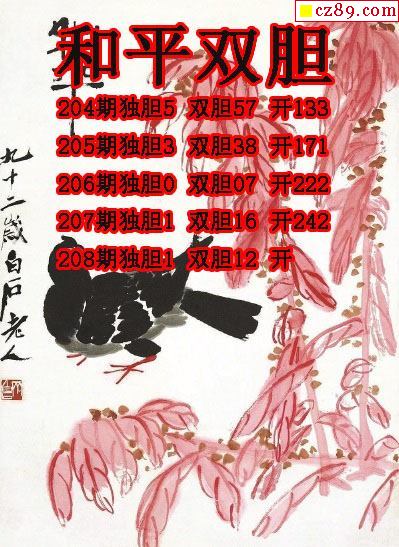 cz89.com
和平双胆
204期独胆5 双胆57 开133
205期独胆3 双胆38 开171
206期独胆0 双胆07 开222
207期独胆1 双胆16 开242
208期独胆1 双胆12 开
九十二岁白石老人